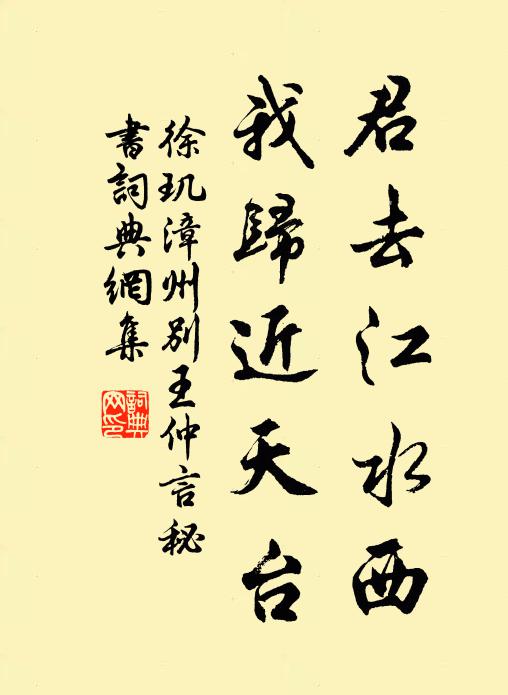 君去江水西
我歸近天台
徐玑漳州别王仲言秘
書詞典網集
詞典网印